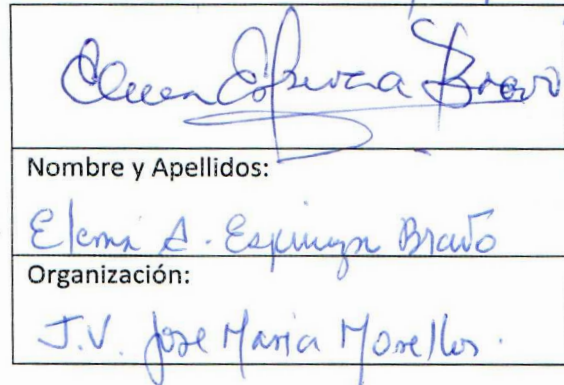 Elena Espinoza Bravo
Nombre y Apellidos:
Elena A. Espinoza Bravo
Organización:
J.V. Jose Maria Morellos.